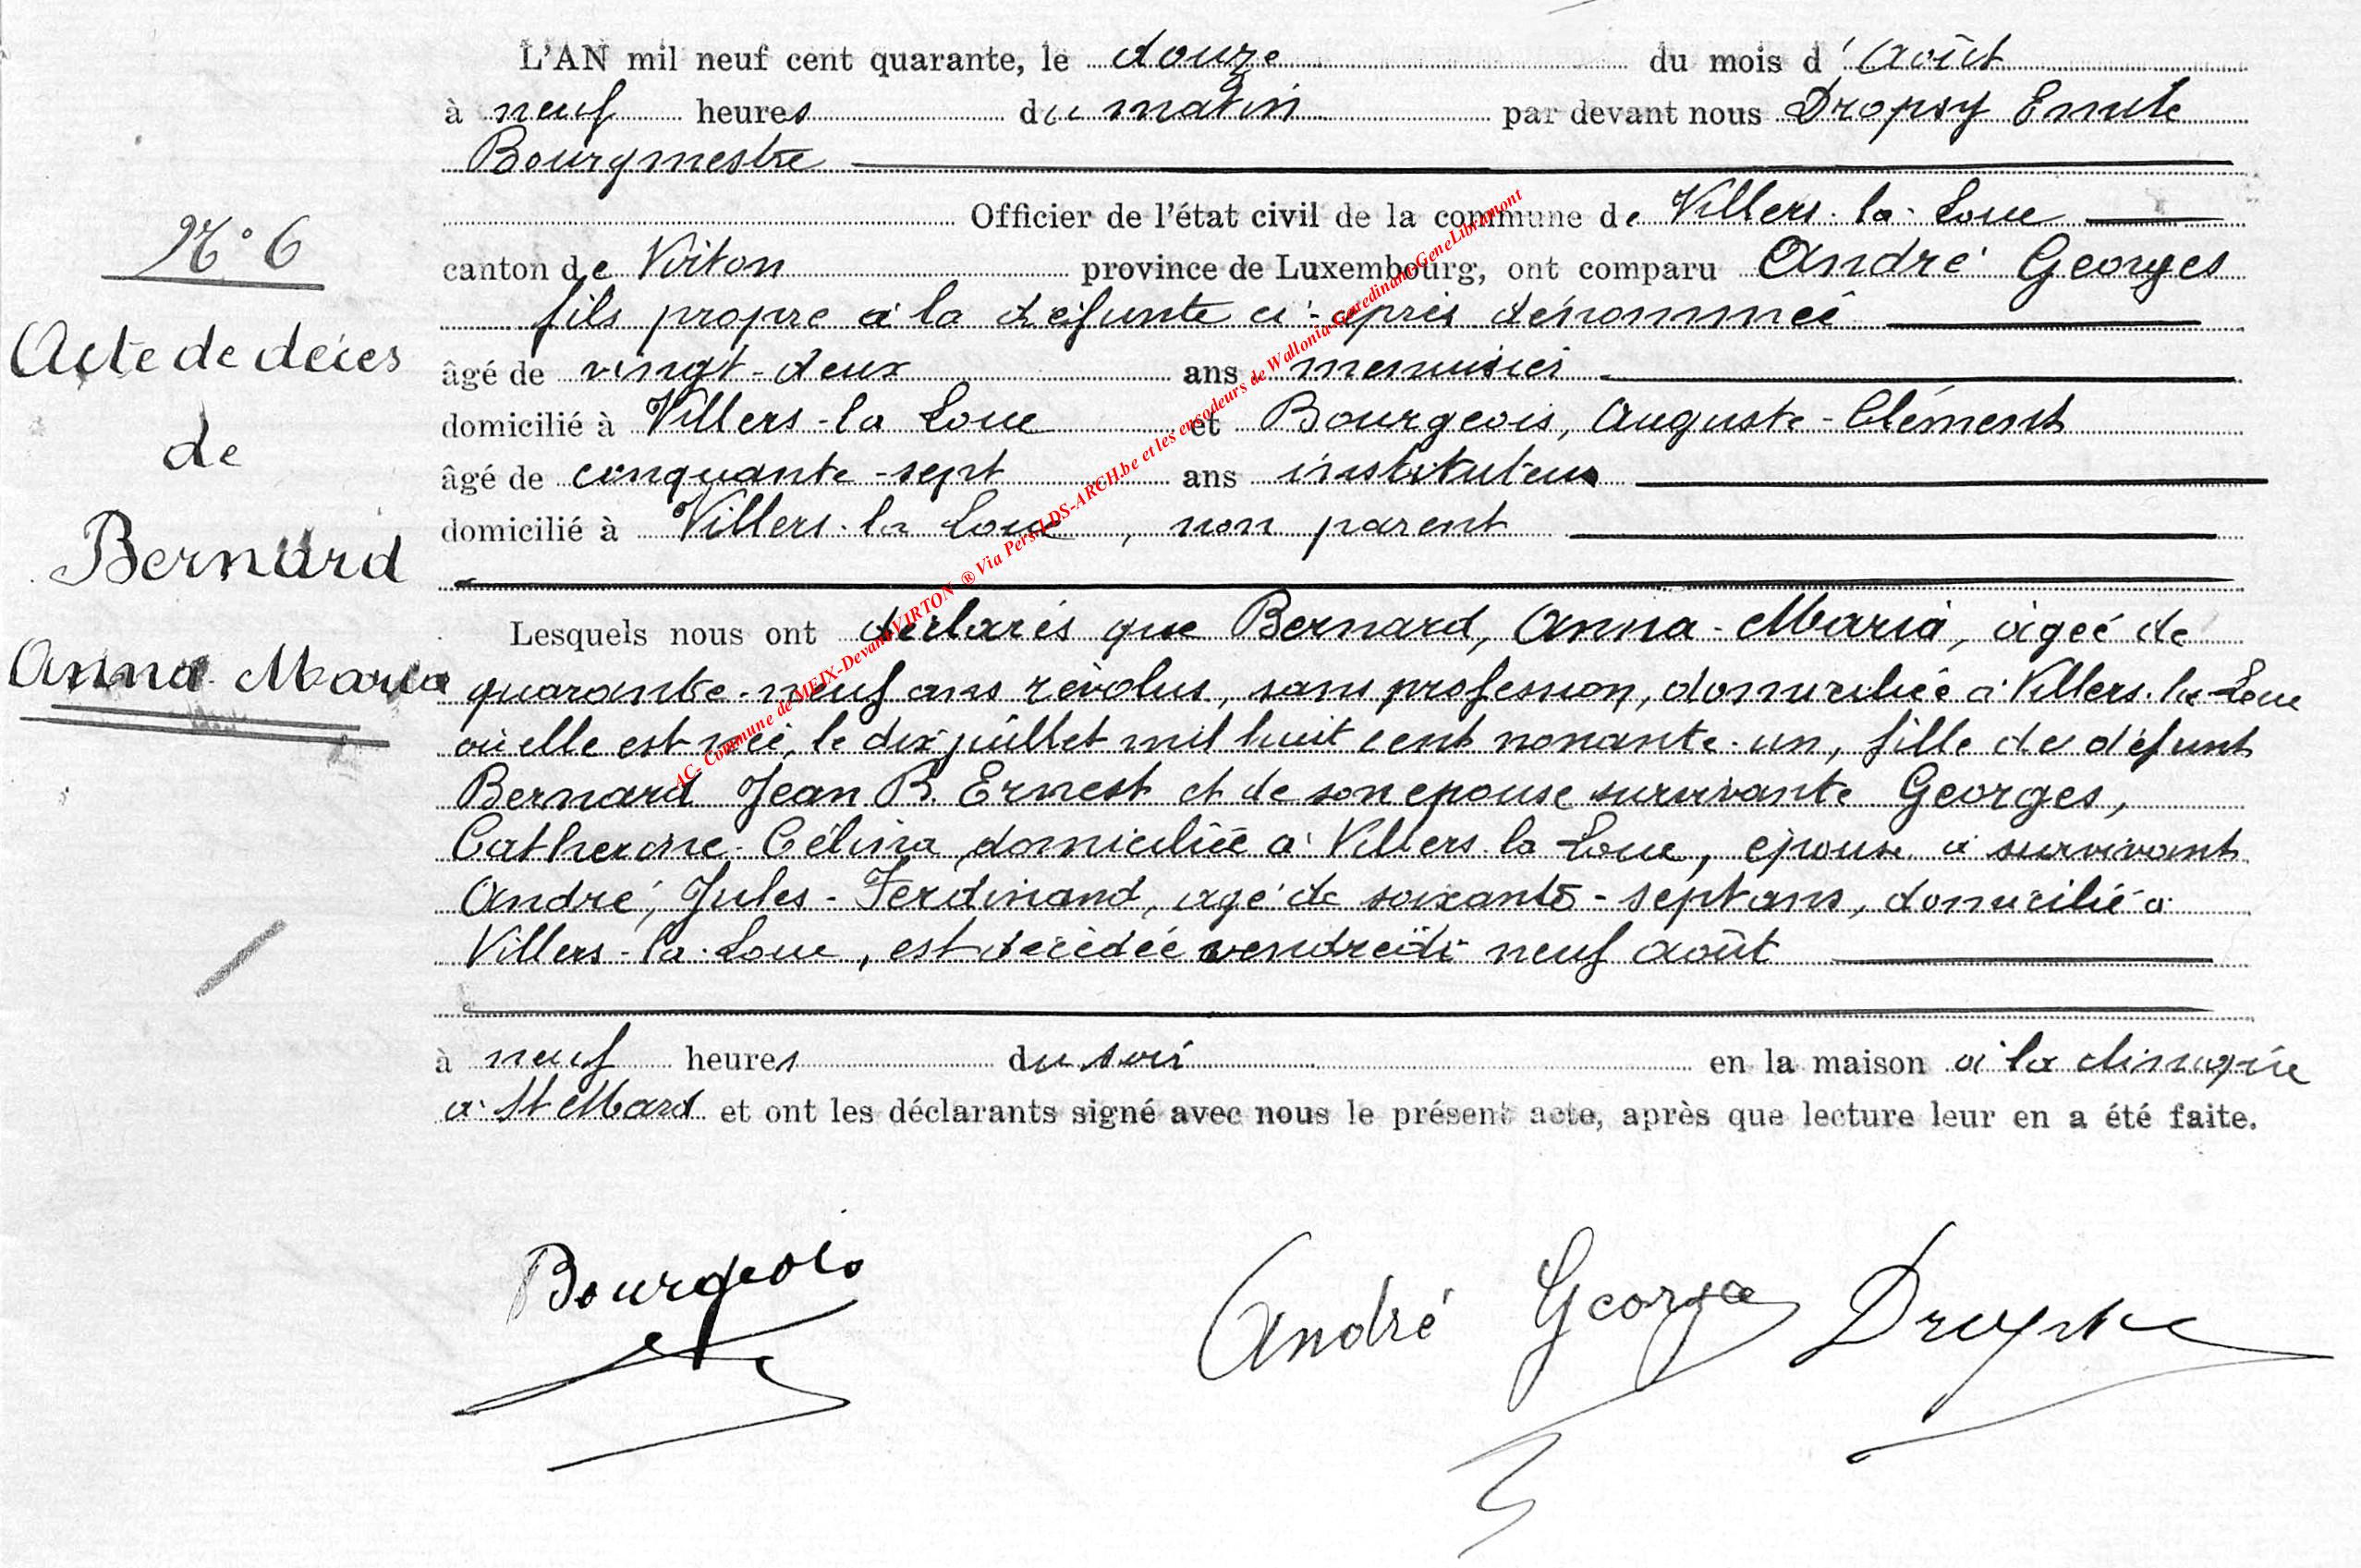 L'AN mil neuf cent quarante, le douze du mois d'Août
à neuf heures du matin par devant nous Dropsy Emile
Bourgmestre
Officier de l'état civil de la commune de Villers-la-Loue
N° 6
canton de Virton province de Luxembourg, ont comparu André Georges
fils propre à la défunte ci-après dénommée
Acte de décès
âgé de vingt-deux ans menuisier
domicilié à Villers-la Loue et Bourgeois, Auguste-Clément
de
âgé de cinquante-sept ans instituteur
domicilié à Villers-la Loue, non parent
Bernard
Lesquels nous ont déclarés que Bernard, Anna-Maria, âgée de
Anna-Maria
quarante-neuf ans révolus, sans profession, domiciliée à Villers-la-Loue
où elle est née, le dix juillet mil huit cent nonante-un, fille de défunt
Bernard Jean B. Ernest et de son epouse survivante Georges,
Catherine-Célina domiciliée à Villers-la-Loue, épouse à survivant
André, Jules-Ferdinand, âgé de soixante-sept ans, domicilié à
Villers-la-Loue, est décédée vendredi neuf août
à neuf heures du soir en la maison à la clinique
à St Mard et ont les déclarants signé avec nous le présent acte, après que lecture leur en a été faite.
Bourgeois
André Georges
AC- Commune de MEIX-Devant-VIRTON ® Via Pers. LDS-ARCH.be et les encodeurs de Wallonia-Geneedinant-GeneLibramont